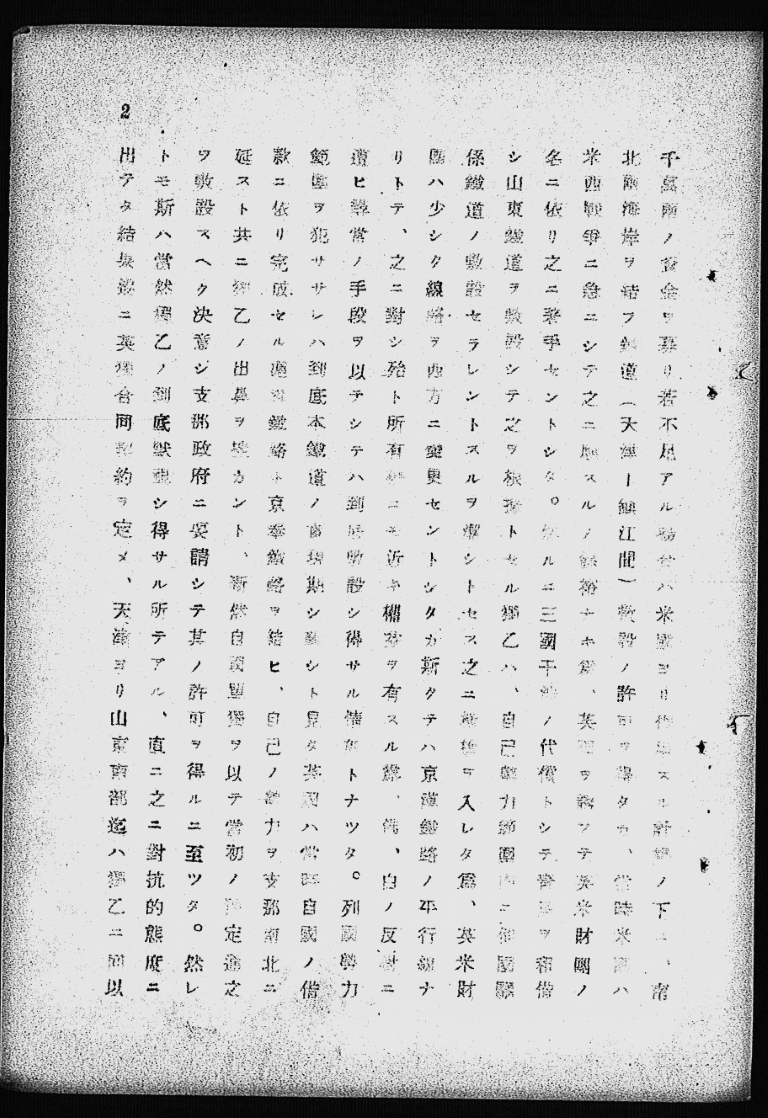 2
千萬兩ノ資金ヲ募リ若不足アル場合ハ米國ヨリ スル計畫ノ下ニ、南
北兩海岸ヲ結フ鐵道(天津ー鎮江間)敷設ノ許可ヲ得タカ、當時米國ハ
米西戰爭ニ急ニシテ之ニ スルノ餘裕ナキ爲、英國ヲ テ英米財團ノ
名ニ依リ之ニ著手セントシタ。然ルニ三國干渉ノ代償トシテ膠州 ヲ租借
シ山東鐵道ヲ敷設シテ之ヲ根據トセル獨乙ハ、自己勢力範圍内ニ他國關
係鐵道ノ敷設セラレントスルヲ シトセス之ニ ヲ入レタ爲、英米財
團ハ少シク線路ヲ西方ニ變更セントシタカ斯クテハ京漢鐵路ノ平行線ナ
リトテ、之ニ對シ殆ト所有 ニモ近キ權利ヲ有スル露、佛、白ノ反對ニ
遭ヒ尋常ノ手段ヲ以テシテハ到底敷設シ得サル情勢トナツタ。列國勢力
範圍ヲ犯ササレハ到底本鐵道ノ 期シ難シト見タ英國ハ當時自國ノ借
款ニ依リ完成セル 鐵路ト京奉鐵路ヲ結ヒ、自己ノ勢力ヲ支那南北ニ
延スト共ニ獨乙ノ出鼻ヲ挫カント、斷然自國單獨ヲ以テ當初ノ豫定通之
ヲ敷設スヘク決意シ支那政府ニ要請シテ其ノ許可ヲ得ルニ至ツタ。然レ
トモ斯ハ當然獨乙ノ到底默視シ得サル所テアル、直ニ之ニ對抗的態度ニ
出テタ結果遂ニ英獨合同契約ヲ定メ、天津ヨリ山東南部迄ハ獨乙ニ 以